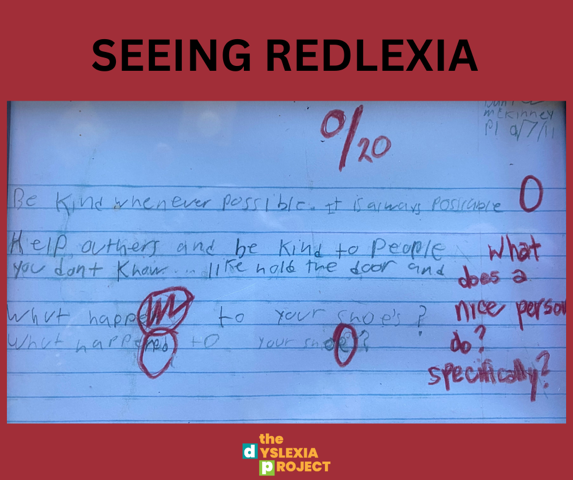 SEEING REDLEXIA
mckinney
P1 9/7/11
0/20
Be Kind whenever possible. It is always posicable
0
Help outhers and be kind to People
you dont Know... like hold the door and
what
does a
nice person
do?
specifically?
Whut happe to your shoe's?
Whut happened to your shoe?
the
DYSLEXIA
PROJECT